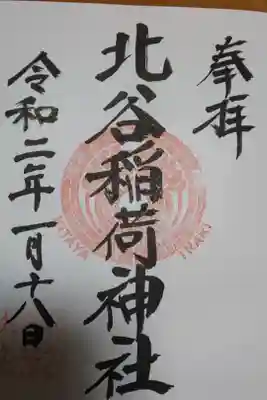 奉拝
北谷稲荷神社
令和二年一月十八日
KITAYA INARI